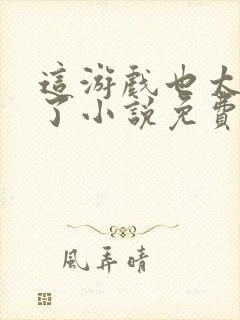 這游戲也太
了小說免費
風弄晴